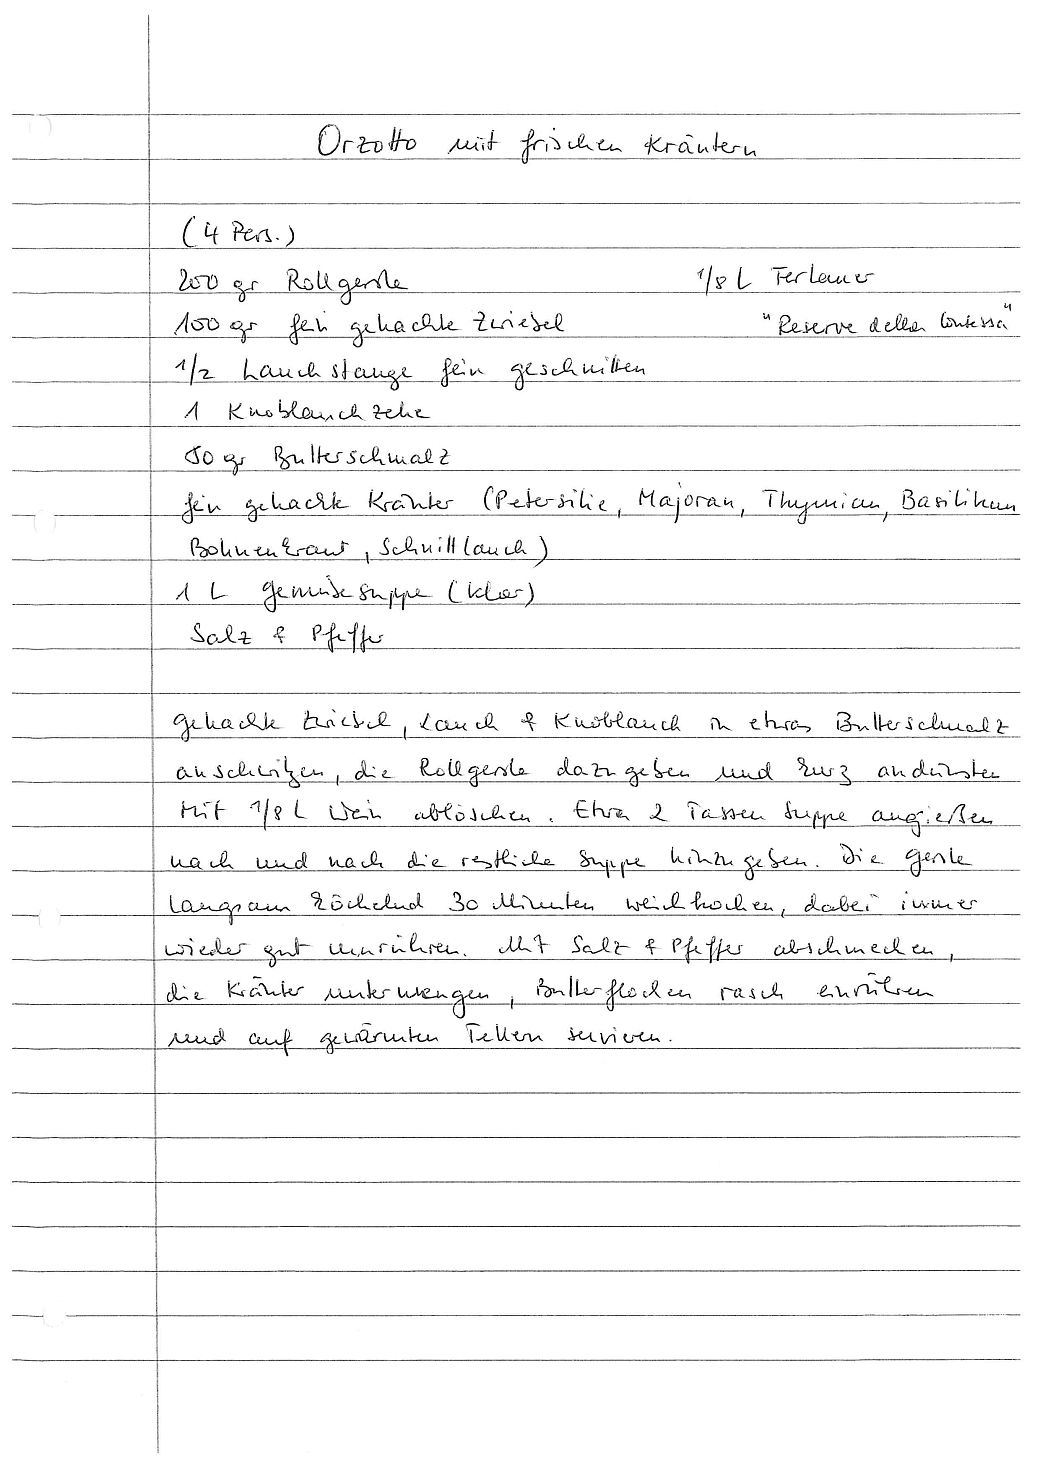 Orzotto mit frischen Kräutern
(4 Pers.)
200 gr Rollgerste 1/8 L Terlaner
100 gr fein gehackte Zwiebel "Reserve della Contessa"
1/2 Lauchstange fein geschnitten
1 Knoblauchzehe
50 gr Butterschmalz
fein gehackte Kräuter (Petersilie, Majoran, Thymian, Basilikum
Bohnenkraut, Schnittlauch)
1 L Gemüsesuppe (klar)
Salz & Pfeffer
gehackte Zwiebel, Lauch & Knoblauch in etwas Butterschmalz
anschwitzen, die Rollgerste dazugeben und kurz andünsten
Mit 1/8 L Wein ablöschen. Etwa 2 Tassen Suppe angießen
nach und nach die restliche Suppe hinzugeben. Die Gerste
langsam köchelnd 30 Minuten weichkochen, dabei immer
wieder gut umrühren. Mit Salz & Pfeffer abschmecken,
die Kräuter untermengen, Butterflocken rasch einrühren
und auf gewärmten Tellern servieren.